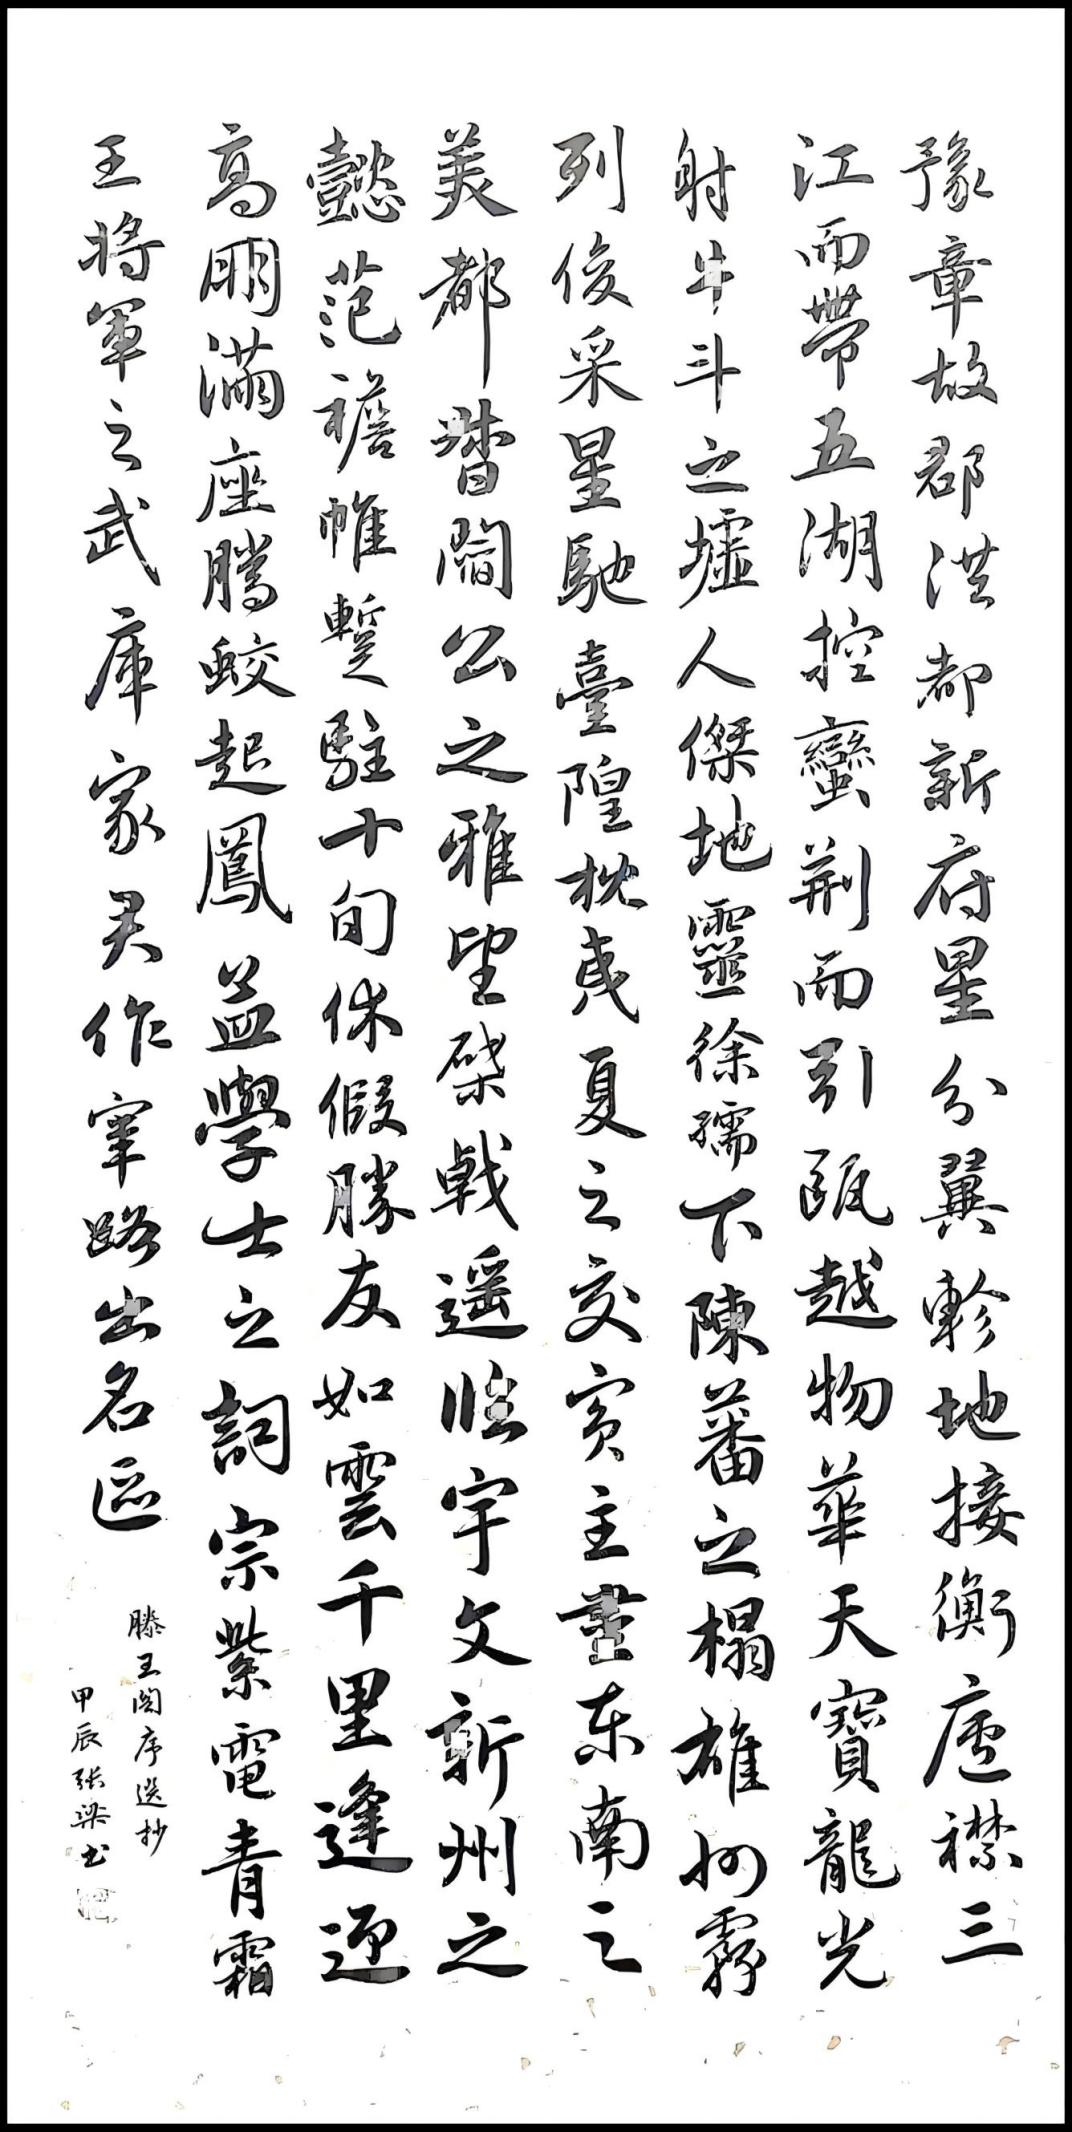 豫章故郡洪都新府星分翼軫地接衡廬襟三
江而帶五湖控蠻荆而引甌越物華天寶龍光
射牛斗之墟人傑地靈徐孺下陳蕃之榻雄州霧
列俊采星馳臺隍枕夷夏之交賓主盡东南之
美都督閻公之雅望棨戟遥臨宇文新州之
懿范襜帷暫駐十旬休假勝友如雲千里逢迎
高朋滿座騰蛟起鳳孟學士之詞宗紫電青霜
王將軍之武庫家君作宰路出名區
滕王閣序選抄
甲辰张梁书